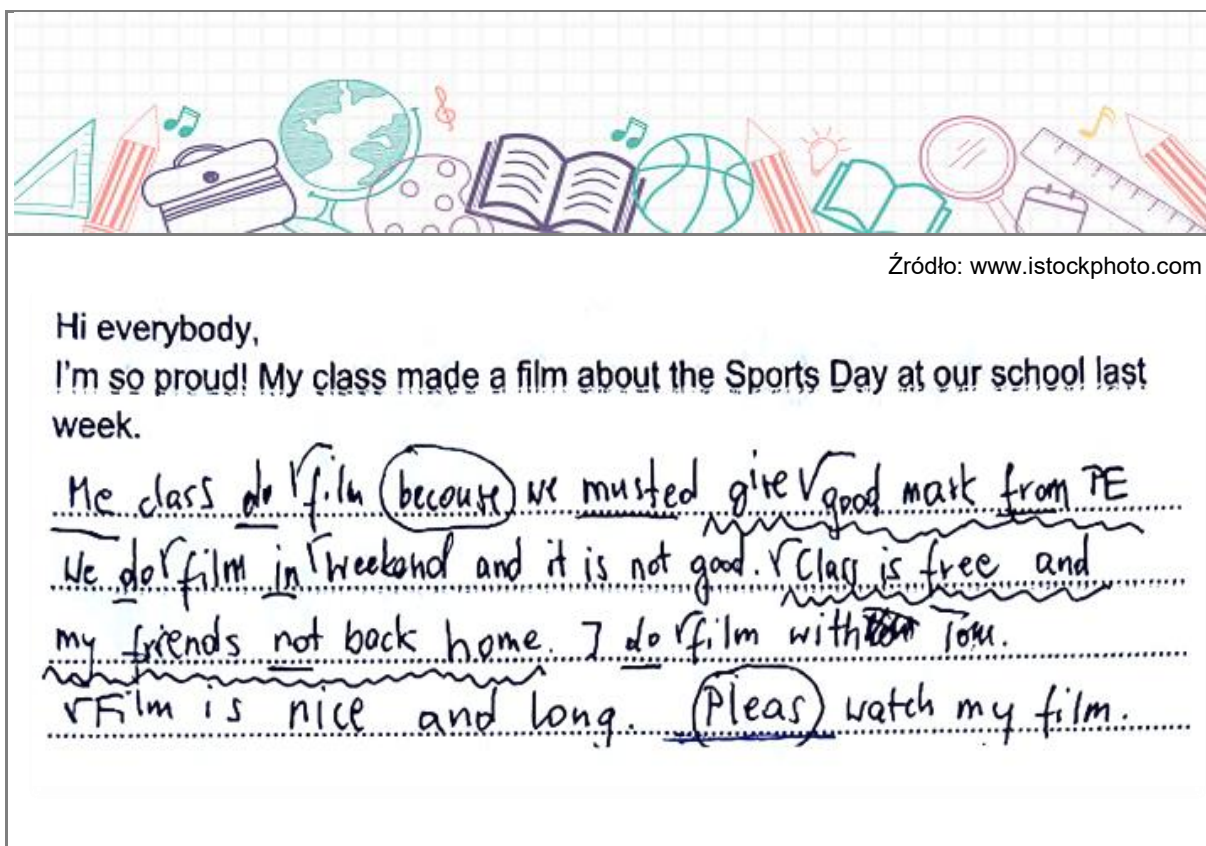 Źródło: www.istockphoto.com
Hi everybody,
I'm so proud! My class made a film about the Sports Day at our school last
week.
Me class do √film becouse we musted give √good mark from PE
We do √film in √weekend and it is not good. √Class is free and
my friends not back home. I do √film with Tom.
√Film is nice and long. Pleas watch my film.